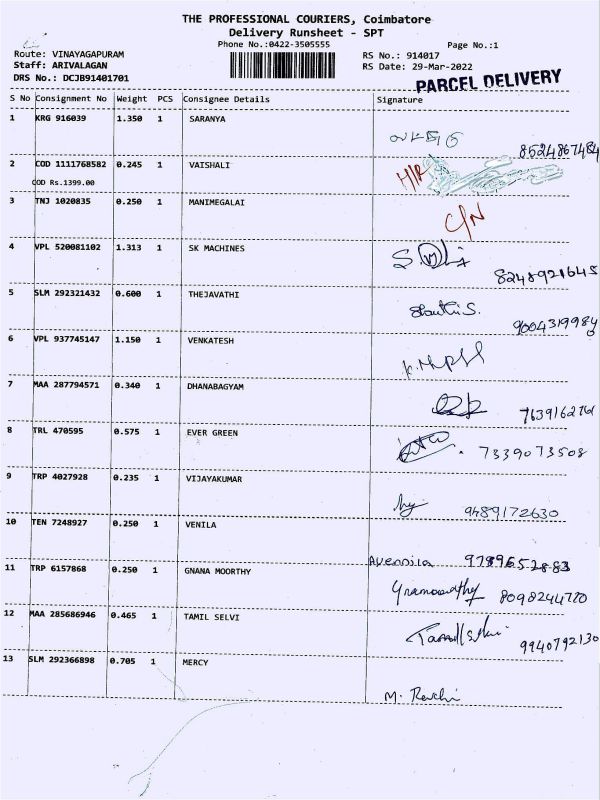 THE PROFESSIONAL COURIERS, Coimbatore
Delivery Runsheet - SPT
Phone No.:0422-3505555
Page No.:1
Route: VINAYAGAPURAM
RS No.: 914017
Staff: ARIVALAGAN
RS Date: 29-Mar-2022
DRS No.: DCJB91401701
PARCEL DELIVERY
S No Consignment No Weight PCS Consignee Details Signature
1 KRG 916039 1.350 1 SARANYA
8524867484
2 COD 1111768582 0.245 1 VAISHALI
COD Rs.1399.00
3 TNJ 1020835 0.250 1 MANIMEGALAI
C/N
4 VPL 520081102 1.313 1 SK MACHINES
8248921645
5 SLM 292321432 0.600 1 THEJAVATHI
Shanthi S.
9004319984
6 VPL 937745147 1.150 1 VENKATESH
7 MAA 287794571 0.340 1 DHANABAGYAM
8 TRL 470595 0.575 1 EVER GREEN
7339073508
9 TRP 4027928 0.235 1 VIJAYAKUMAR
9489172630
10 TEN 7248927 0.250 1 VENILA
9789652883
11 TRP 6157868 0.250 1 GNANA MOORTHY
8098244770
12 MAA 285686946 0.465 1 TAMIL SELVI
9940792130
13 SLM 292366898 0.705 1 MERCY